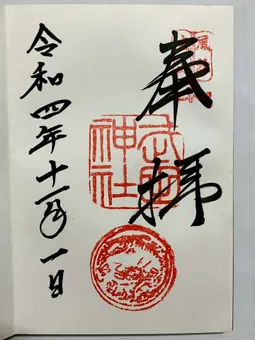 奉拝
神社
令和四年十一月一日